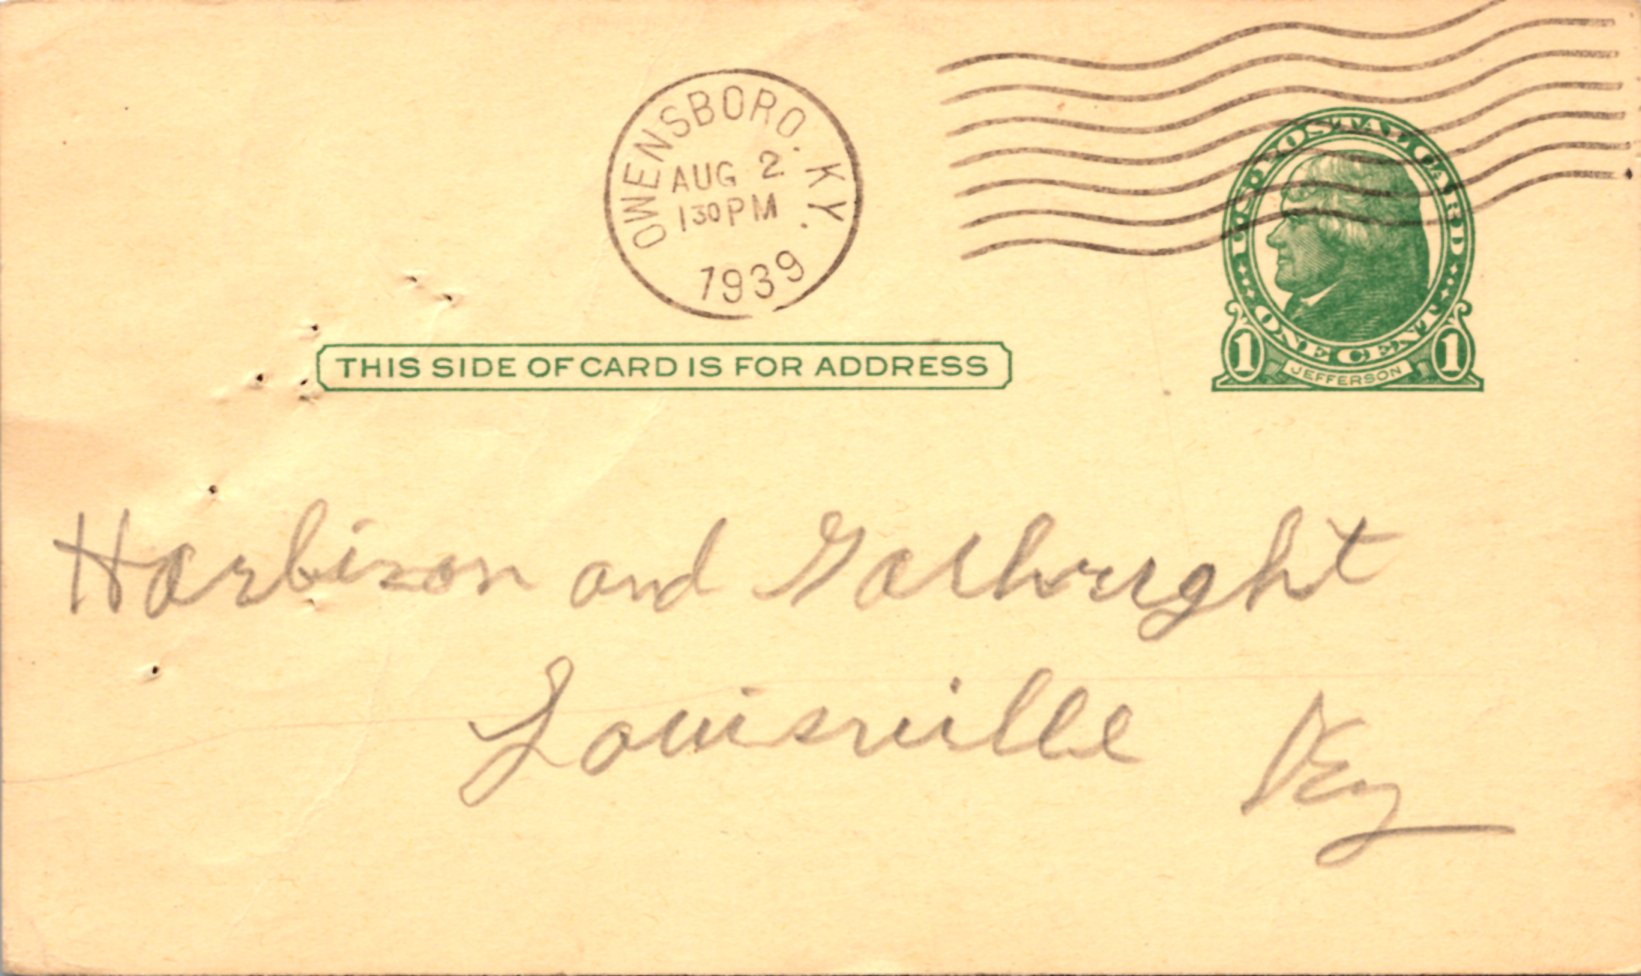 OWENSBORO, KY.
AUG 2
1 30 PM
1939
U.S. POSTAL CARD
ONE CENT
1 1
JEFFERSON
THIS SIDE OF CARD IS FOR ADDRESS
Harbison and Gathright
Louisville Ky